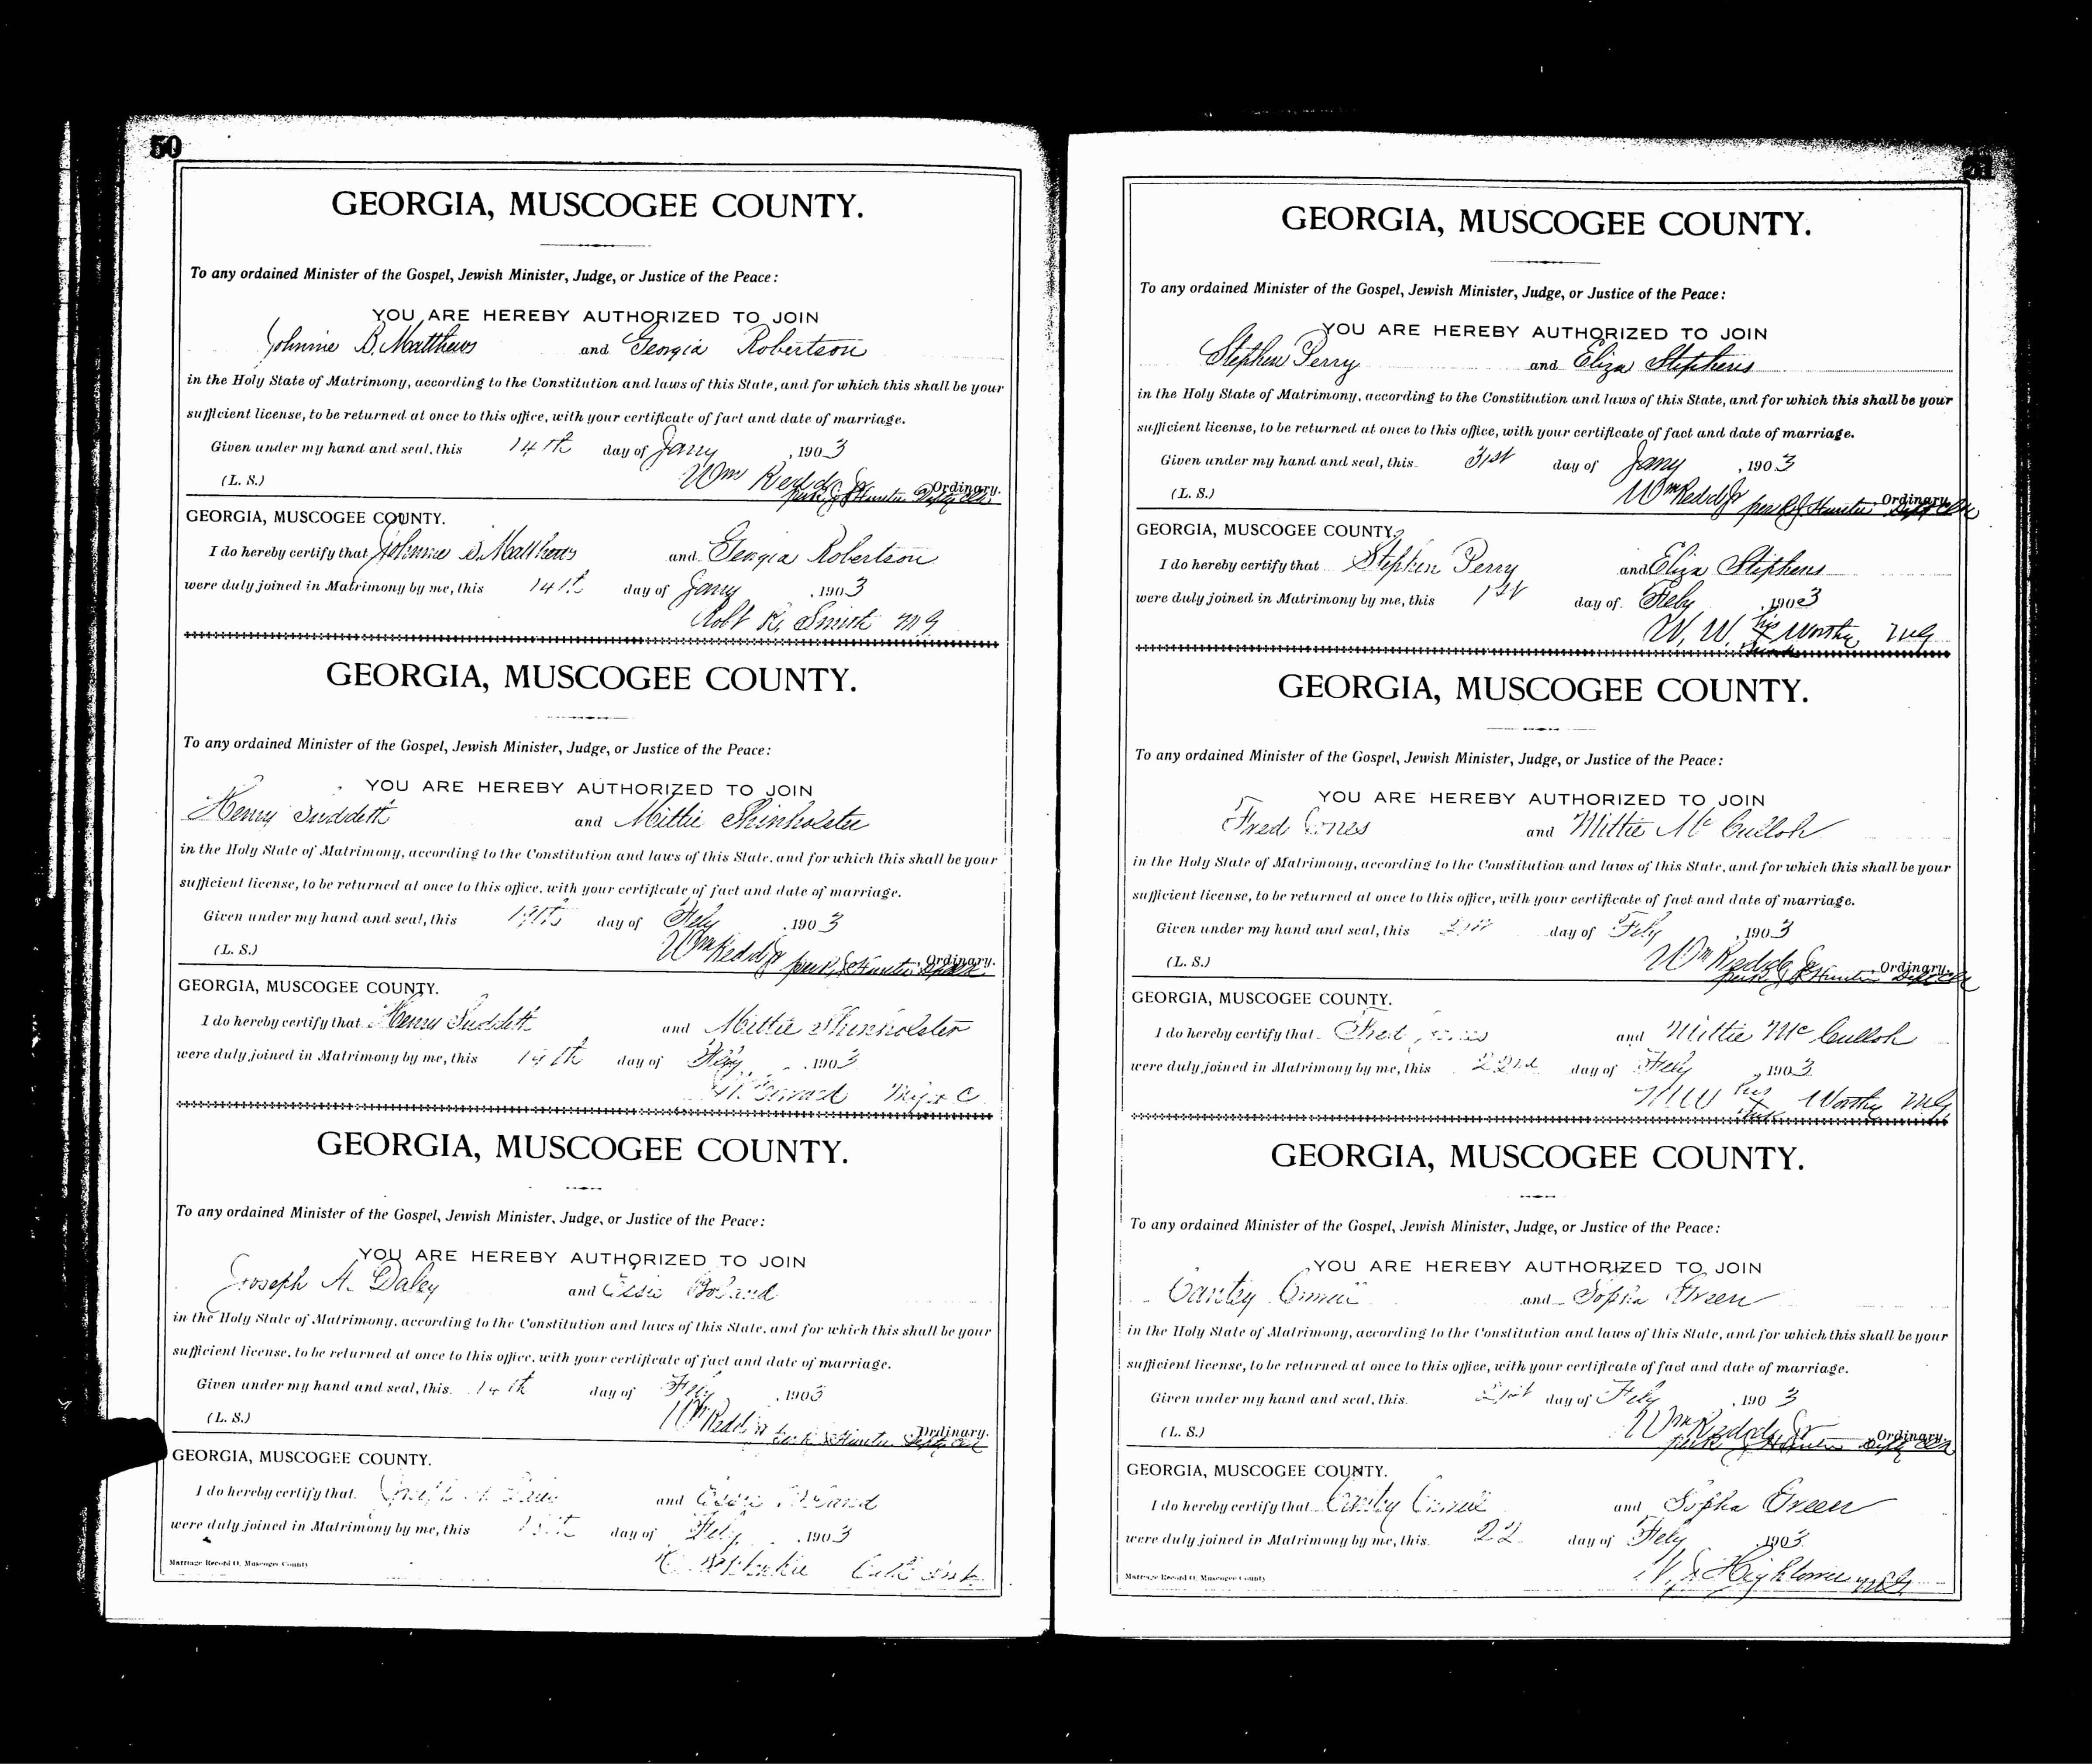 50
GEORGIA, MUSCOGEE COUNTY.
To any ordained Minister of the Gospel, Jewish Minister, Judge, or Justice of the Peace:
YOU ARE HEREBY AUTHORIZED TO JOIN
Johnnie B. Matthews and Georgia Robertson
in the Holy State of Matrimony, according to the Constitution and laws of this State, and for which this shall be your
sufficient license, to be returned at once to this office, with your certificate of fact and date of marriage.
Given under my hand and seal, this 14th day of Jany, 1903
Wm Redd Jr
(L. S.) Ordinary.
GEORGIA, MUSCOGEE COUNTY.
I do hereby certify that Johnnie B. Matthews and Georgia Robertson
were duly joined in Matrimony by me, this 14th day of Jany, 1903
Robt K. Smith MG
GEORGIA, MUSCOGEE COUNTY.
To any ordained Minister of the Gospel, Jewish Minister, Judge, or Justice of the Peace:
YOU ARE HEREBY AUTHORIZED TO JOIN
Henry Suddeth and Mittie Shinholster
in the Holy State of Matrimony, according to the Constitution and laws of this State, and for which this shall be your
sufficient license, to be returned at once to this office, with your certificate of fact and date of marriage.
Given under my hand and seal, this day of Feby, 1903
Wm Redd Jr
(L. S.) Ordinary.
GEORGIA, MUSCOGEE COUNTY.
I do hereby certify that Henry Suddeth and Mittie Shinholster
were duly joined in Matrimony by me, this 14th day of Feby, 1903
GEORGIA, MUSCOGEE COUNTY.
To any ordained Minister of the Gospel, Jewish Minister, Judge, or Justice of the Peace:
YOU ARE HEREBY AUTHORIZED TO JOIN
Joseph A. Daley and Essie Boland
in the Holy State of Matrimony, according to the Constitution and laws of this State, and for which this shall be your
sufficient license, to be returned at once to this office, with your certificate of fact and date of marriage.
Given under my hand and seal, this 14th day of Feby, 1903
Wm Redd Jr
(L. S.) Ordinary.
GEORGIA, MUSCOGEE COUNTY.
I do hereby certify that and Essie Boland
were duly joined in Matrimony by me, this 15th day of Feby, 1903
Marriage Record O, Muscogee County
51
GEORGIA, MUSCOGEE COUNTY.
To any ordained Minister of the Gospel, Jewish Minister, Judge, or Justice of the Peace:
YOU ARE HEREBY AUTHORIZED TO JOIN
Stephen Perry and Eliza Stephens
in the Holy State of Matrimony, according to the Constitution and laws of this State, and for which this shall be your
sufficient license, to be returned at once to this office, with your certificate of fact and date of marriage.
Given under my hand and seal, this 31st day of Jany, 1903
Wm Redd Jr
(L. S.) Ordinary.
GEORGIA, MUSCOGEE COUNTY.
I do hereby certify that Stephen Perry and Eliza Stephens
were duly joined in Matrimony by me, this 1st day of Feby, 1903
W. W. his X mark Worthy MG
GEORGIA, MUSCOGEE COUNTY.
To any ordained Minister of the Gospel, Jewish Minister, Judge, or Justice of the Peace:
YOU ARE HEREBY AUTHORIZED TO JOIN
Fred Jones and Mittie McCulloh
in the Holy State of Matrimony, according to the Constitution and laws of this State, and for which this shall be your
sufficient license, to be returned at once to this office, with your certificate of fact and date of marriage.
Given under my hand and seal, this 21st day of Feby, 1903
Wm Redd Jr
(L. S.) Ordinary.
GEORGIA, MUSCOGEE COUNTY.
I do hereby certify that Fred Jones and Mittie McCulloh
were duly joined in Matrimony by me, this 22nd day of Feby, 1903
W W his X mark Worthy MG
GEORGIA, MUSCOGEE COUNTY.
To any ordained Minister of the Gospel, Jewish Minister, Judge, or Justice of the Peace:
YOU ARE HEREBY AUTHORIZED TO JOIN
Cantey and Sopha Green
in the Holy State of Matrimony, according to the Constitution and laws of this State, and for which this shall be your
sufficient license, to be returned at once to this office, with your certificate of fact and date of marriage.
Given under my hand and seal, this 21st day of Feby, 1903
Wm Redd Jr
(L. S.) Ordinary.
GEORGIA, MUSCOGEE COUNTY.
I do hereby certify that and Sopha Green
were duly joined in Matrimony by me, this 22 day of Feby, 1903
Hightower MG
Marriage Record O, Muscogee County